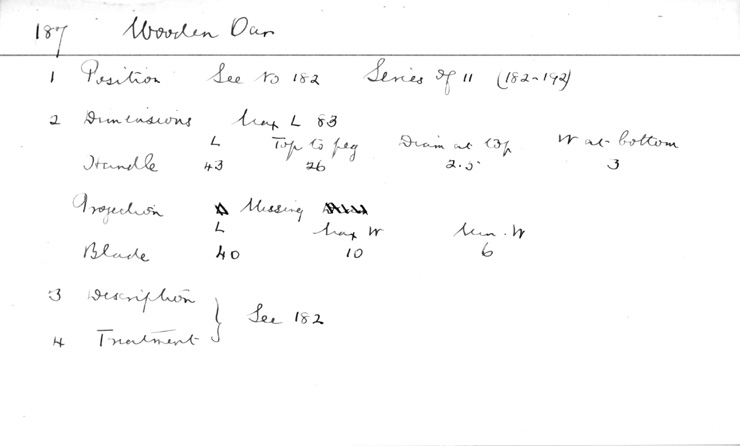 187 Wooden Oar
1 Position See No 182 Series of 11 (182-192)
2 Dimensions Max L 83
L Top to peg Diam at top W at bottom
Handle 43 26 2.5 3
Projection Missing
L Max W Min. W
Blade 40 10 6
3 Description } See 182
4 Treatment